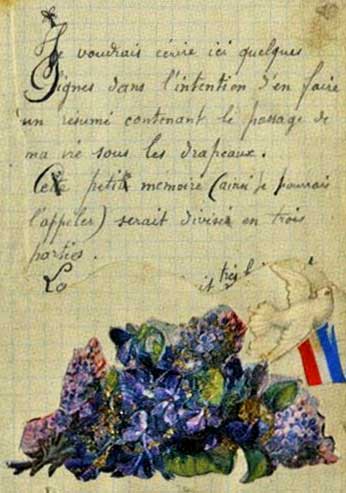 Je voudrais écrire ici quelques
lignes dans l'intention d'en faire
un résumé contenant le passage de
ma vie sous les drapeaux.
Ce petit memoire (ainsi je pourrais
l'appeler) serait divisé en trois
parties.
La